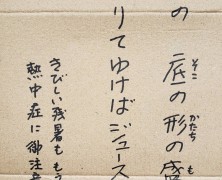 の 底の形の盛
そこ かたち も
りてゆけばジュース
きびしい残暑ももう
熱中症に御注